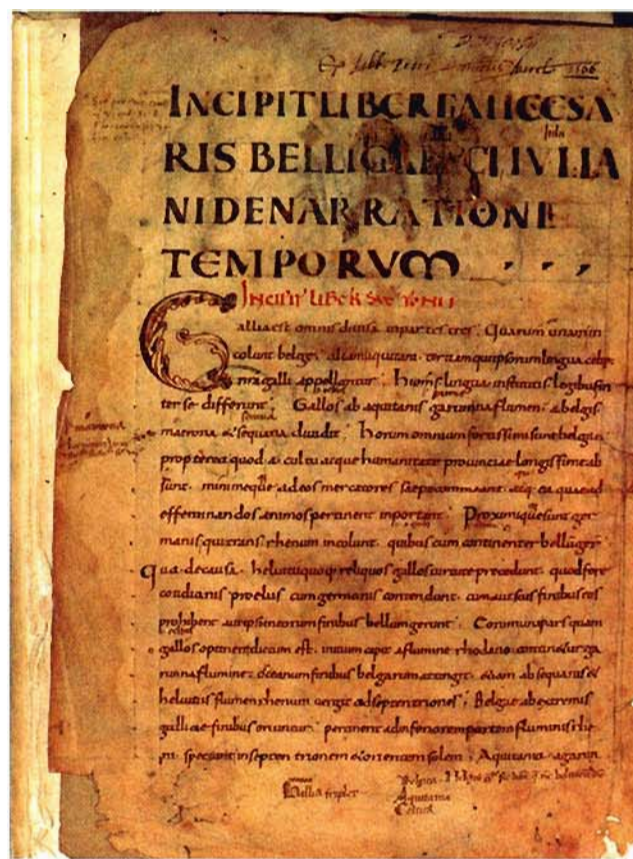 INCIPIT LIBER GAII CESA
RIS BELLI GALLICI IVLIA
NI DE NARRATIONE
TEMPORVM
INCIPIT LIBER SVETONII
Gallia est omnis divisa in partes tres. Quarum unam in
colunt belgę. aliam aquitani. tertiam qui ipsorum lingua celtę.
nra galli appellantur. Hi oms lingua institutis legibus in
ter se differunt. Gallos ab aquitanis garunna flumen. a belgis
matrona & sequana dividit. Horum omnium fortissimi sunt belgae.
propterea quod a cultu atque humanitate provinciae longissime ab
sunt. minimeque ad eos mercatores saepe commeant. atq. ea quae ad
effeminandos animos pertinent inportant. Proximique sunt ger
manis. qui trans rhenum incolunt. quibus cum continenter bellum ger
Qua de causa. helvetii quoq. reliquos gallos virtute precedunt. quod fere
cotidianis proeliis cum germanis contendunt. cum aut suis finibus eos
prohibent aut ipsi in eorum finibus bellum gerunt. Eorum una pars quam
gallos optinere dictum est. initium capit a flumine rhodano. continetur ga
runna flumine. oceanum finibus belgarum attingit. etiam ab sequanis &
helvetiis flumen rhenum vergit ad septentriones. Belgae ab extremis
galliae finibus oriuntur. pertinent ad inferiorem partem fluminis rhe
ni. spectant in septentrionem & orientem solem. Aquitania a garun
Gallia triplex
Belgica
Aquitania
Celtica